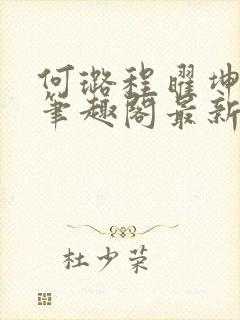 何璐程曜坤
笔趣阁最新
杜少荣